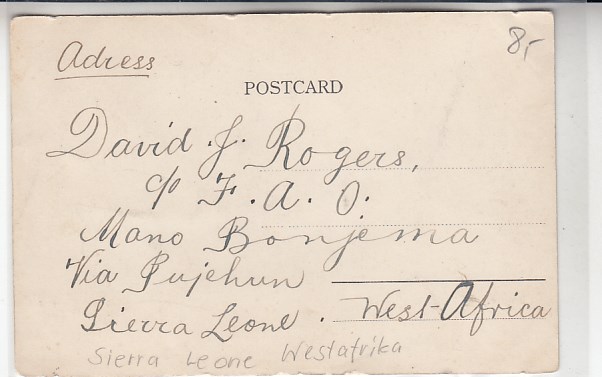 Adress
8,-
POSTCARD
David. J. Rogers,
c/o F.A.O.
Mano Bonjema
Via Pujehun
Sierra Leone. West-Africa
Sierra Leone Westafrika